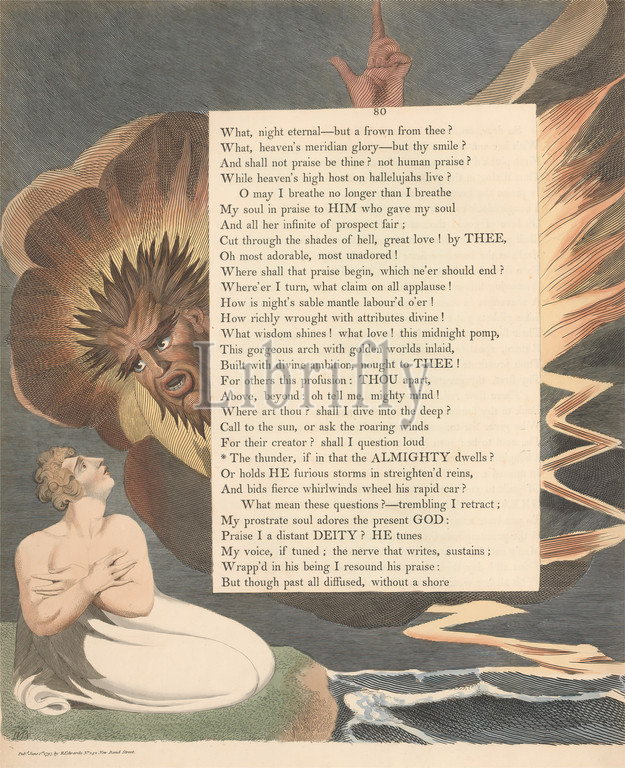 80
What, night eternal—but a frown from thee?
What, heaven's meridian glory—but thy smile?
And shall not praise be thine? not human praise?
While heaven's high host on hallelujahs live?
O may I breathe no longer than I breathe
My soul in praise to HIM who gave my soul
And all her infinite of prospect fair;
Cut through the shades of hell, great love! by THEE,
Oh most adorable, most unadored!
Where shall that praise begin, which ne'er should end?
Where'er I turn, what claim on all applause!
How is night's sable mantle labour'd o'er!
How richly wrought with attributes divine!
What wisdom shines! what love! this midnight pomp,
This gorgeous arch with golden worlds inlaid,
Built with divine ambition, nought to THEE!
For others this profusion: THOU apart,
Above, beyond; oh tell me, mighty mind!
Where art thou? shall I dive into thy deep?
Call to the sun, or ask the roaring winds
For their creator? shall I question loud
* The thunder, if in that the ALMIGHTY dwells?
Or holds HE furious storms in streighten'd reins,
And bids fierce whirlwinds wheel his rapid car?
What mean these questions?—trembling I retract;
My prostrate soul adores the present GOD:
Praise I a distant DEITY? HE tunes
My voice, if tuned; the nerve that writes, sustains;
Wrapp'd in his being I resound his praise:
But though past all diffused, without a shore
Librifly
by R.Edwards, New Bond Street